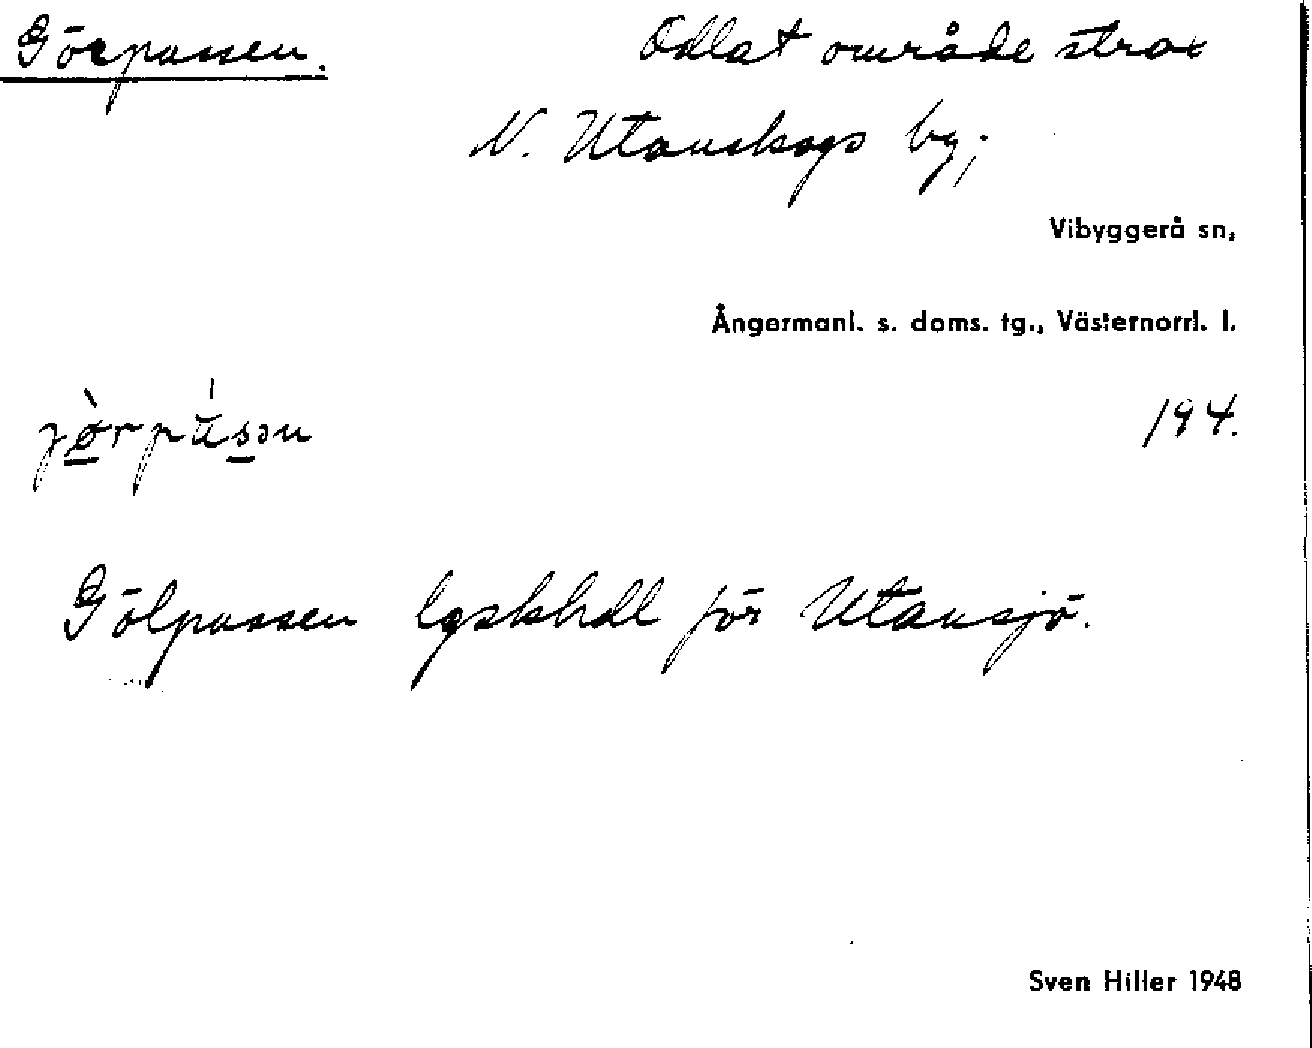 Görpussen. Odlat område strax
N. Utanskogs by;
Vibyggerå sn,
Ångermanl. s. doms. tg., Västernorrl. l.
194.
Gölpussen lgskhdl för Utansjö.
Sven Hiller 1948